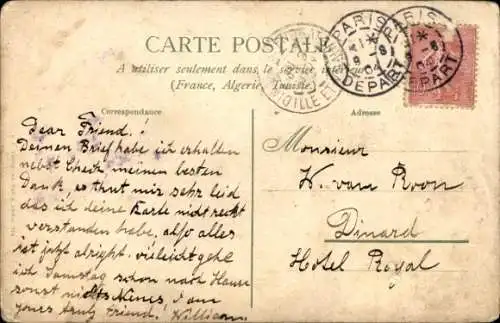 CARTE POSTALE
A utiliser seulement dans le service intérieur
(France, Algérie, Tunisie)
Correspondance
Adresse
PARIS
DEPART
PARIS
DEPART
Dear Friend!
Deinen Brief habe ich erhalten
nebst Check meinen besten
Dank, es thut mir sehr leid
das ich deine Karte nicht recht
verstanden habe, also alles
ist jetzt alright. vieleicht gehe
ich Samstag schon nach Hause
sonst nichts Neues! I am
yours truly friend! William
Monsieur
W. van Roon
Dinard
Hotel Royal